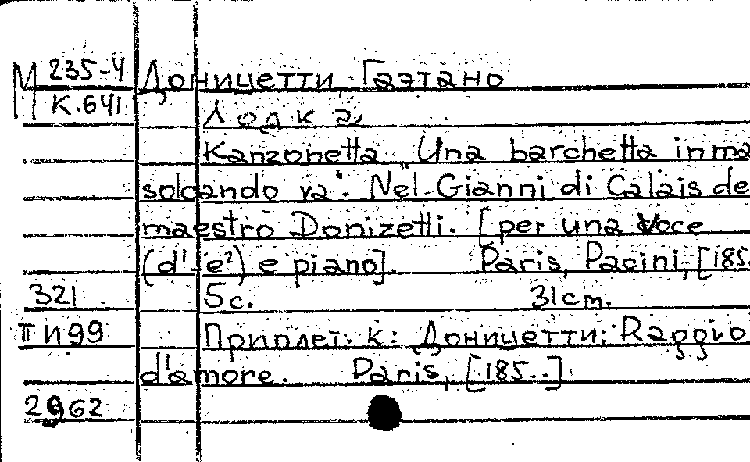 М 235-4 Доницетти, Гаэтано
К.641 Лодка
Kanzonetta „Una barchetta in ma
solcando va“. Nel Gianni di Calais de
maestro Donizetti. [per una voce
(d¹-e²) e piano]. Paris, Pacini, [185.
321 5 с. 31 cm.
П И99 Приплет. к: Доницетти. Raggio
d'amore. Paris, [185..]
2962